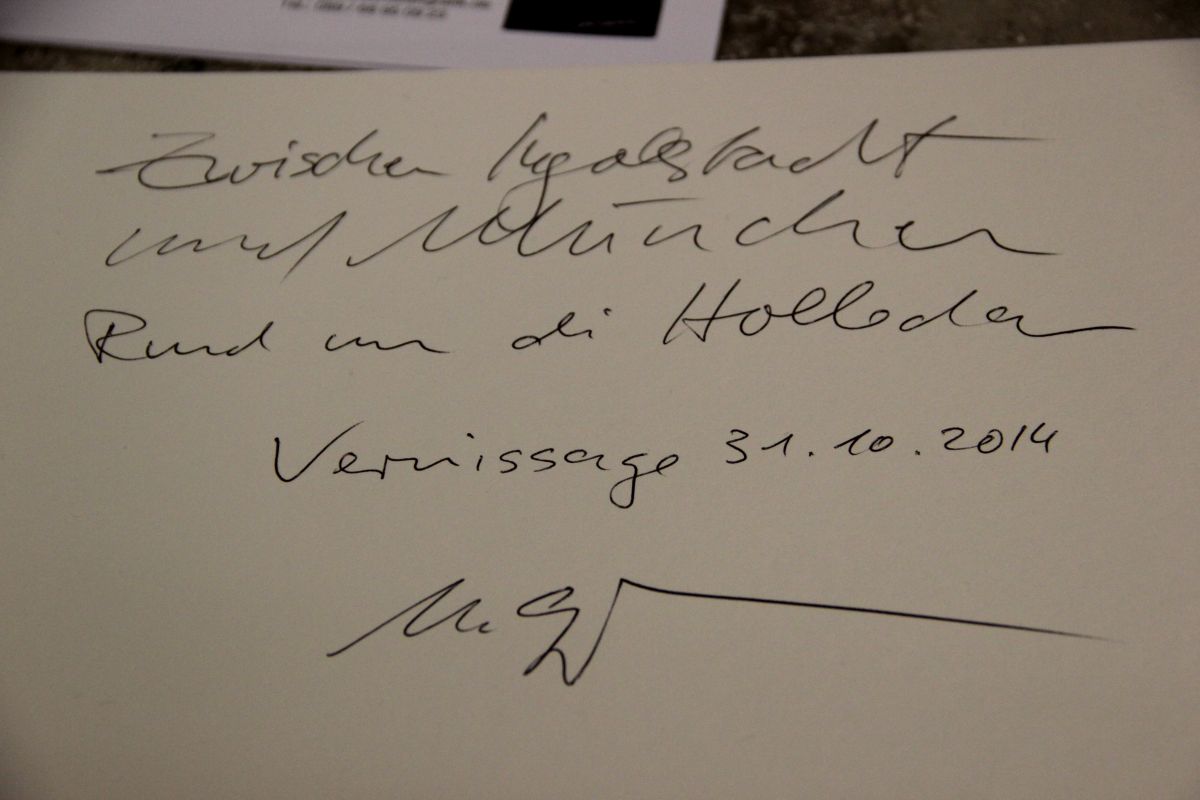 Zwischen Ingolstadt
und München
Rund um die Holledau
Vernissage 31.10.2014